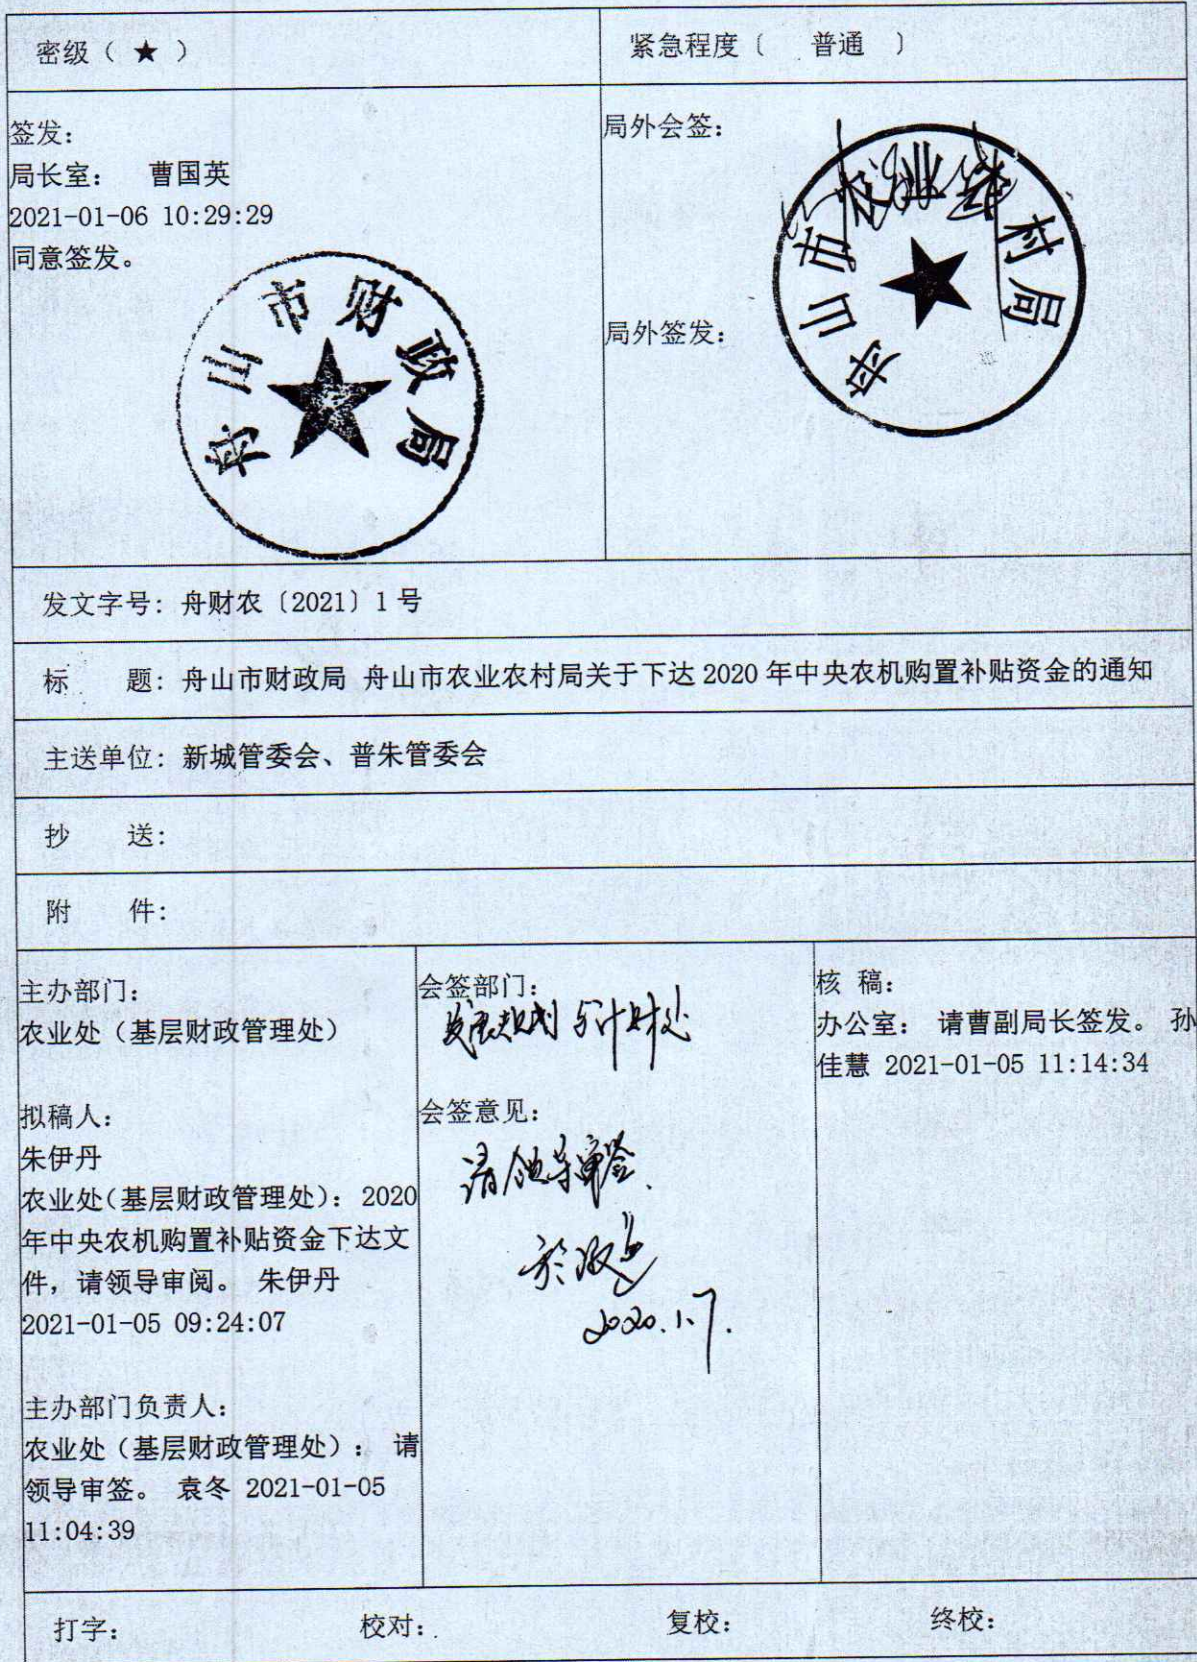 密级（ ★ ）
紧急程度〔 普通 〕
签发：
局长室： 曹国英
2021-01-06 10:29:29
同意签发。
舟山市财政局
局外会签：
舟山市农业农村局
局外签发：
发文字号：舟财农〔2021〕1号
标 题：舟山市财政局 舟山市农业农村局关于下达2020年中央农机购置补贴资金的通知
主送单位：新城管委会、普朱管委会
抄 送：
附 件：
主办部门：
农业处（基层财政管理处）
拟稿人：
朱伊丹
农业处（基层财政管理处）：2020
年中央农机购置补贴资金下达文
件，请领导审阅。 朱伊丹
2021-01-05 09:24:07
主办部门负责人：
农业处（基层财政管理处）： 请
领导审签。 袁冬 2021-01-05
11:04:39
会签部门：
发展规划与计财处
会签意见：
请领导审签.
2020.1.7.
核 稿：
办公室： 请曹副局长签发。 孙
佳慧 2021-01-05 11:14:34
打字： 校对： 复校： 终校：